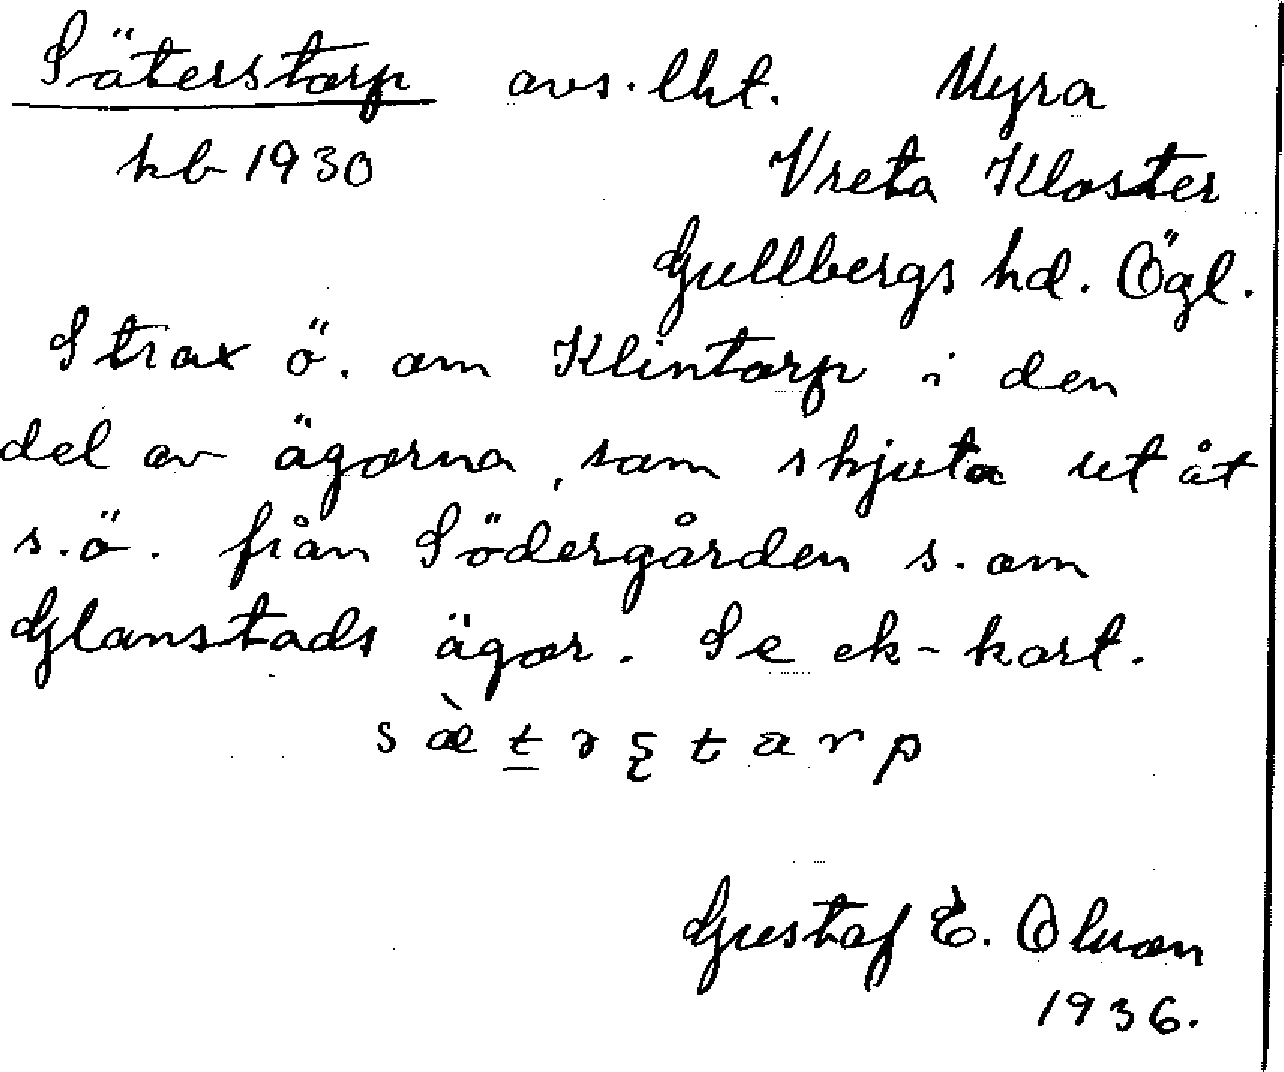 Säterstorp avs. lht. Myra
kb 1930 Vreta Kloster
Gullbergs hd. Ögl.
Strax ö. om Klintorp i den
del av ägorna, som skjuta ut åt
s.ö. från Södergården s. om
Glanstads ägor. Se ek-kart.
Gustaf E.
1936.